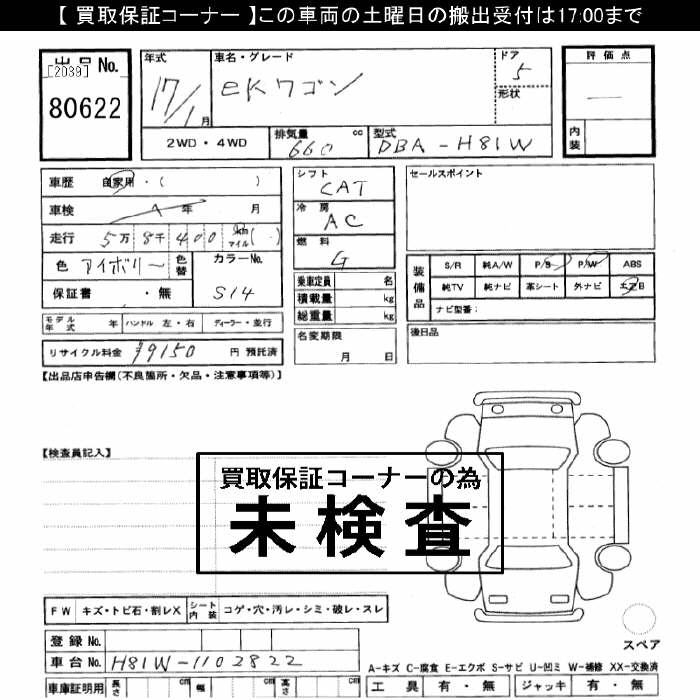 【 買取保証コーナー 】この車両の土曜日の搬出受付は17:00まで
出品 No.
[2039]
80622
年式
17/1月
車名・グレード
eKワゴン
ドア
5
形状
評価点
―
内装
2WD・4WD
排気量 cc
660
型式
DBA-H81W
車歴 自家用・( )
車検 年 月
走行 5万 8千 400 km マイル ( )
色 アイボリー
色替
カラーNo.
S14
保証書 ・無
シフト
CAT
冷房
AC
燃料
G
乗車定員 名
積載量 kg
総重量 kg
セールスポイント
装備品
S/R 純A/W P/S P/W ABS
純TV 純ナビ 革シート 外ナビ エアB
ナビ型番:
モデル年式 年 ハンドル 左・右 ディーラー・並行
名変期限
月 日
後日品
リサイクル料金 ¥9150 円 預託済
【出品店申告欄(不良箇所・欠品・注意事項等)】
【検査員記入】
買取保証コーナーの為
未検査
FW キズ・トビ石・割レX シート内装 コゲ・穴・汚レ・シミ・破レ・スレ
登録 No.
車台 No. H81W-1102822
スペア
A-キズ C-腐食 E-エクボ S-サビ U-凹ミ W-補修 XX-交換済
車庫証明用 長さ cm 幅 cm 高さ cm
工具 有・無 ジャッキ 有・無